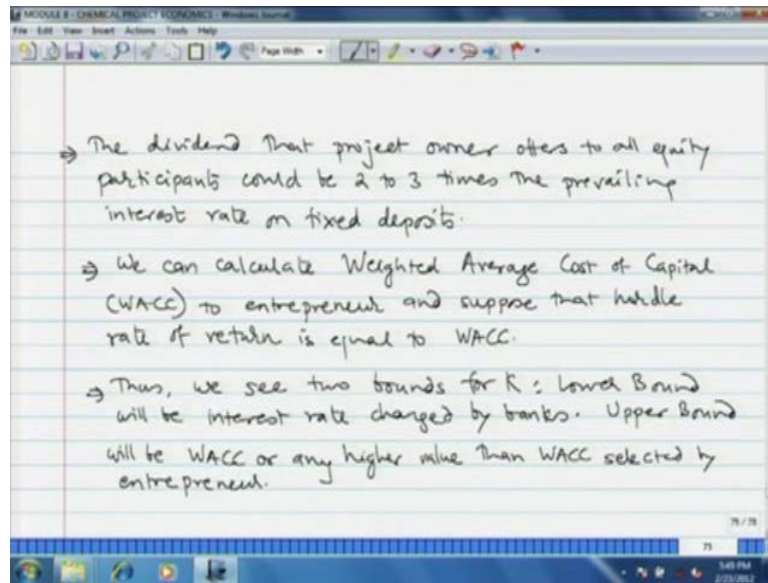 MODULE 8 - CHEMICAL PROJECT ECONOMICS - Windows Journal
File Edit View Insert Actions Tools Help
Page Width
⇒ The dividend that project owner offers to all equity
participants could be 2 to 3 times the prevailing
interest rate on fixed deposits.
⇒ We can calculate Weighted Average Cost of Capital
(WACC) to entrepreneur and suppose that hurdle
rate of return is equal to WACC.
⇒ Thus, we see two bounds for K : Lower Bound
will be interest rate charged by banks. Upper Bound
will be WACC or any higher value than WACC selected by
entrepreneur.
75
5:49 PM
2/23/2012